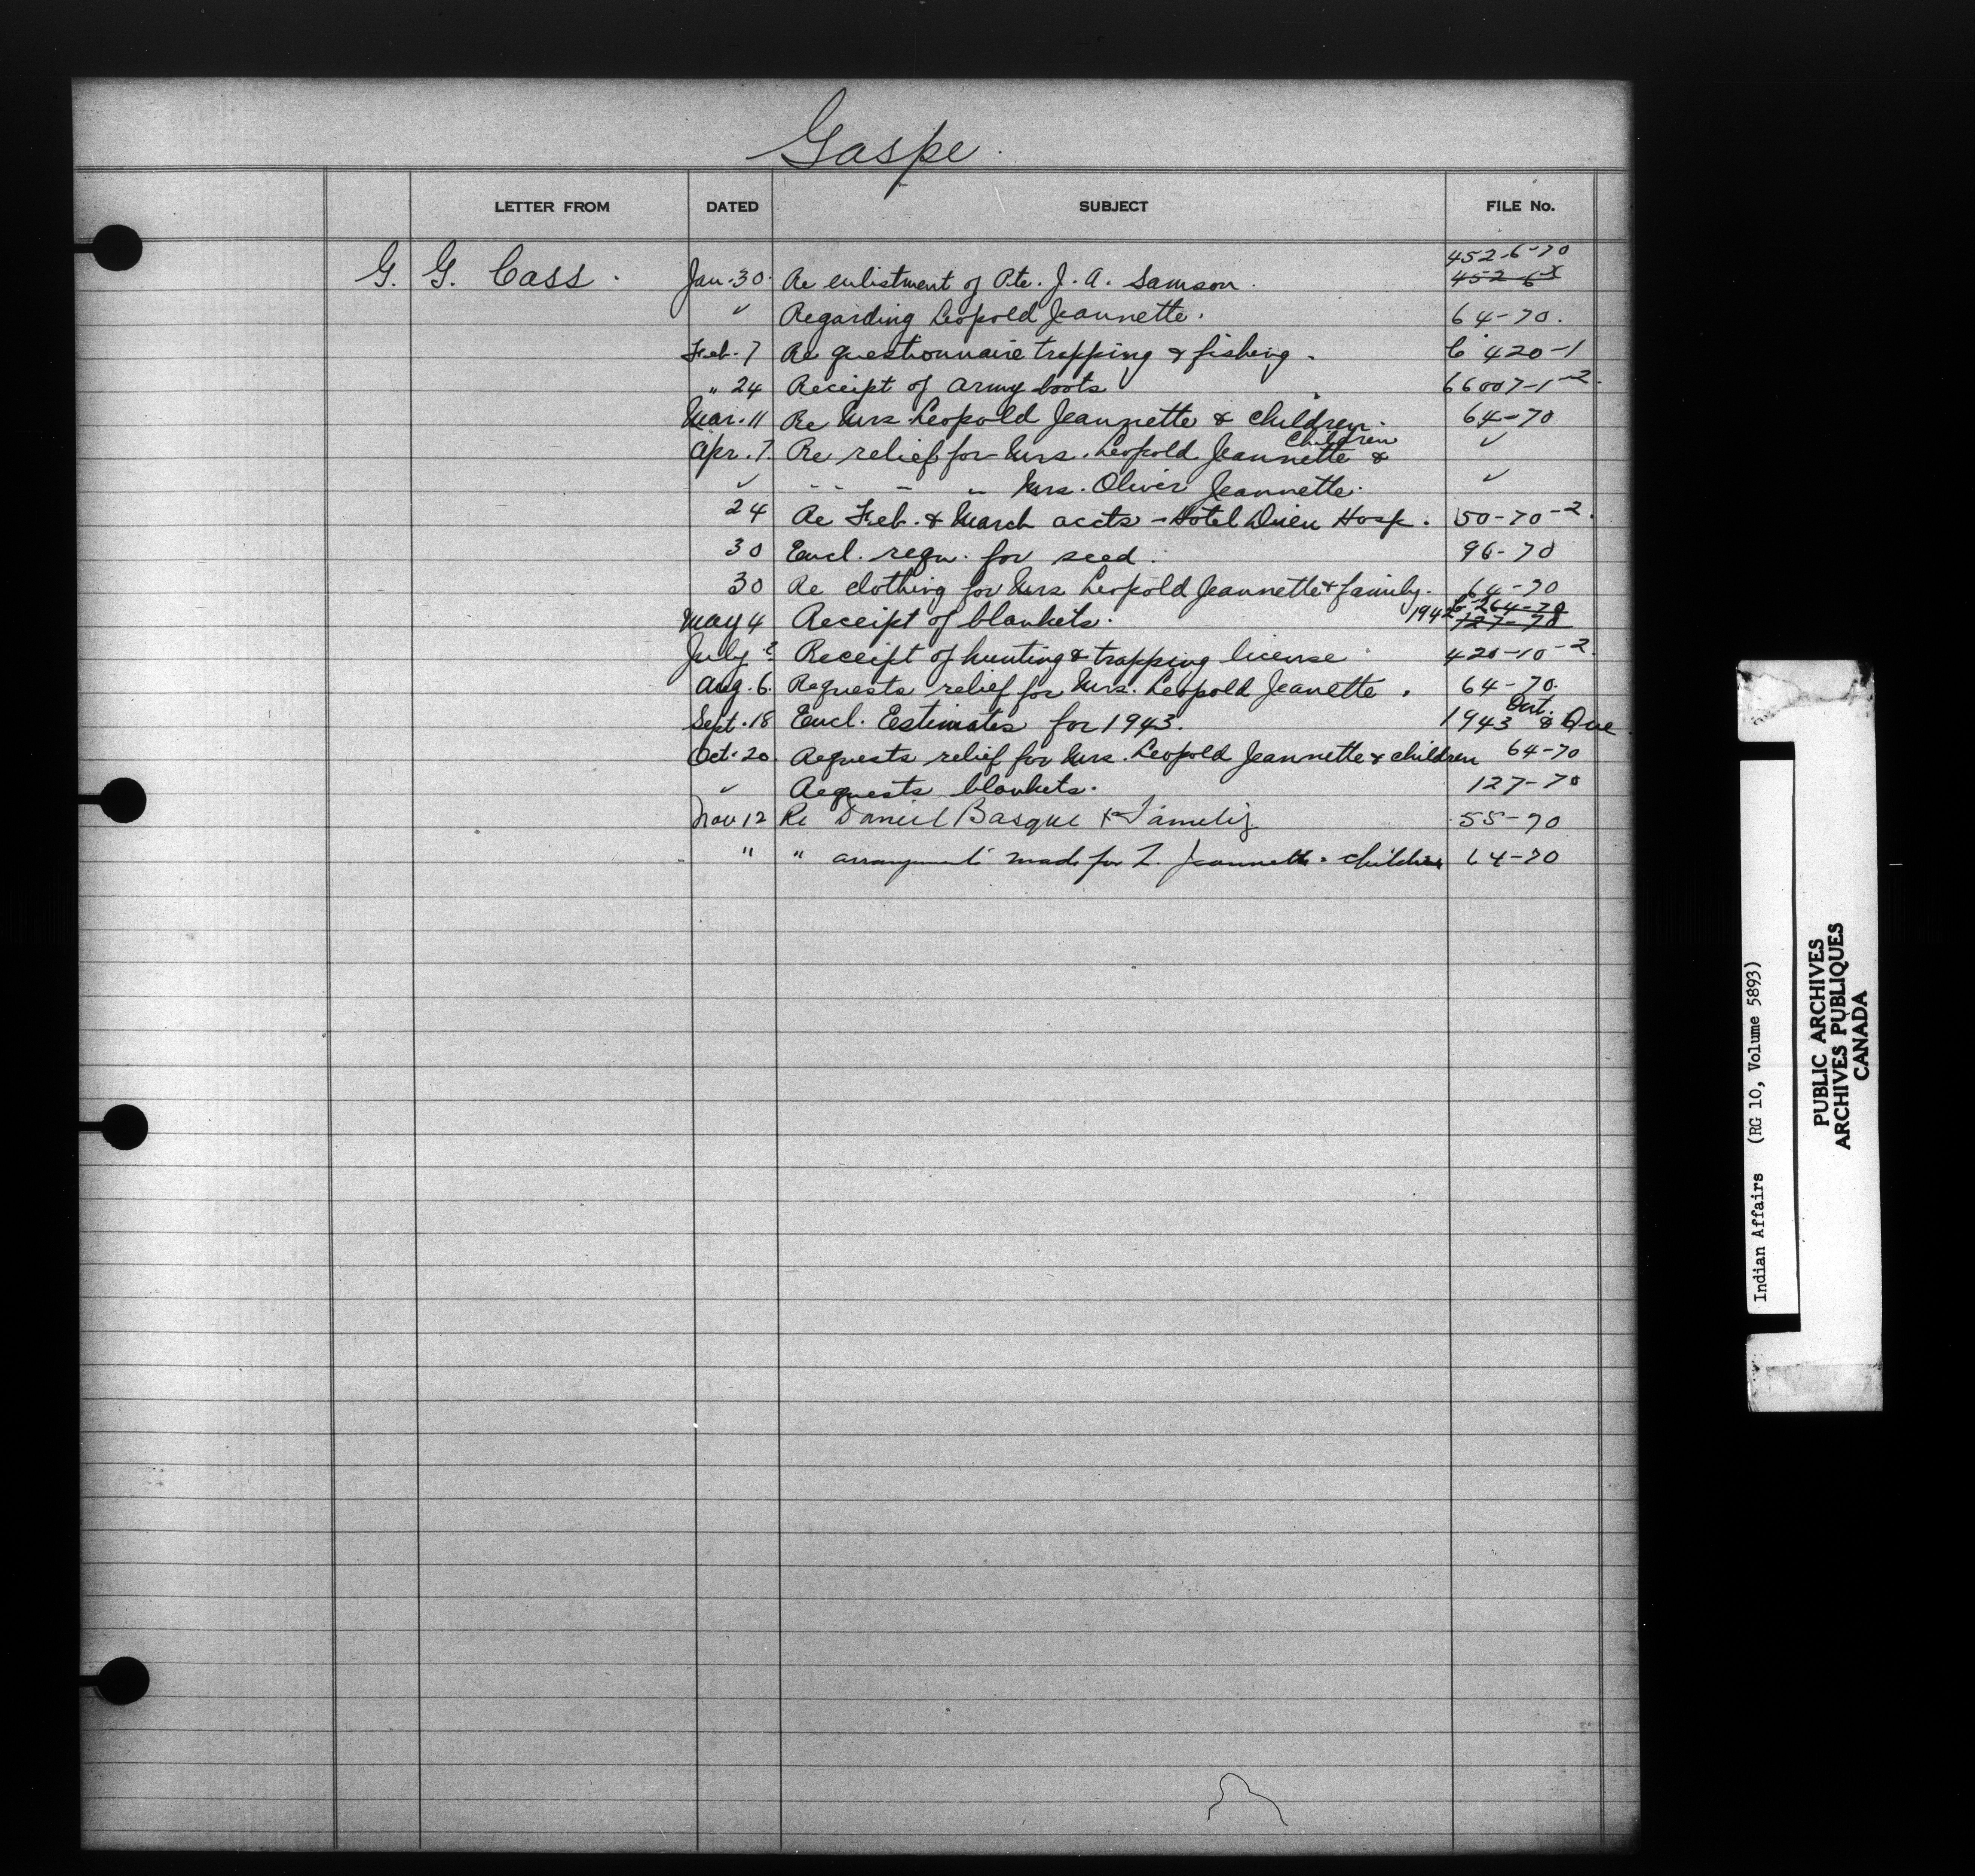 Gaspe.
LETTER FROM DATED SUBJECT FILE No.
452-6-70
G. G. Cass. Jan. 30. Re enlistment of Pte. J. A. Samson. 452-6-
✓ Regarding Leopold Jeannette. 64-70.
Feb. 7 Re questionnaire trapping & fishing. 420-1
" 24 Receipt of army boots 66007-1-2.
Mar. 11 Re Mrs Leopold Jeannette & children. 64-70
Apr. 7. Re relief for Mrs. Leopold Jeannette & Children ✓
✓ " " " " Mrs. Oliver Jeannette. ✓
24 Re Feb. & March accts - Hotel Dieu Hosp. 50-70-2.
30 Encl. reqn. for seed. 96-70
30 Re clothing for Mrs Leopold Jeannette & family. 64-70
May 4 Receipt of blankets. 1942 264-70
127-70
July Receipt of hunting & trapping license 420-10-2.
Aug. 6. Requests relief for Mrs. Leopold Jeanette. 64-70.
Sept. 18 Encl. Estimates for 1943. 1943 Ont. & Que
Oct. 20. Requests relief for Mrs. Leopold Jeannette & children 64-70
✓ Requests blankets. 127-70
Nov 12 Re Daniel Basque & Family 55-70
" " arrangements made for L. Jeannette & children 64-70
Indian Affairs (RG 10, Volume 5893)
PUBLIC ARCHIVES
ARCHIVES PUBLIQUES
CANADA